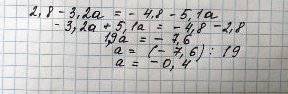 2,8 - 3,2a = - 4,8 - 5,1a
- 3,2a + 5,1a = - 4,8 - 2,8
1,9a = - 7,6
a = (- 7,6) : 19
a = - 0,4